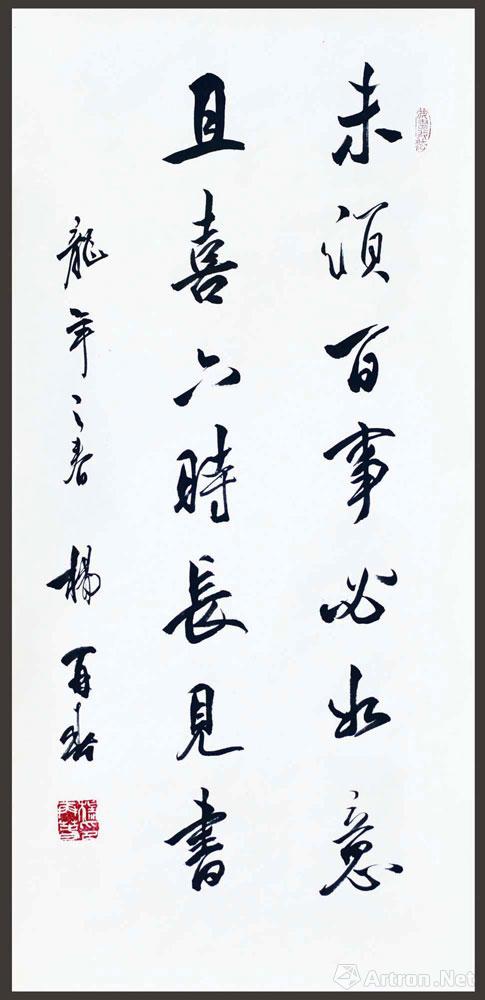 未須百事必如意
且喜六時長見書
龍年之春 楊再春
Artron.Net